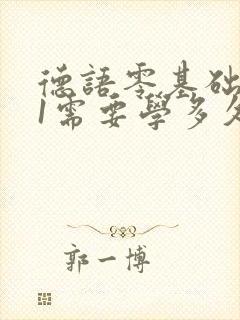 德語零基础
1需要學多
郭一博